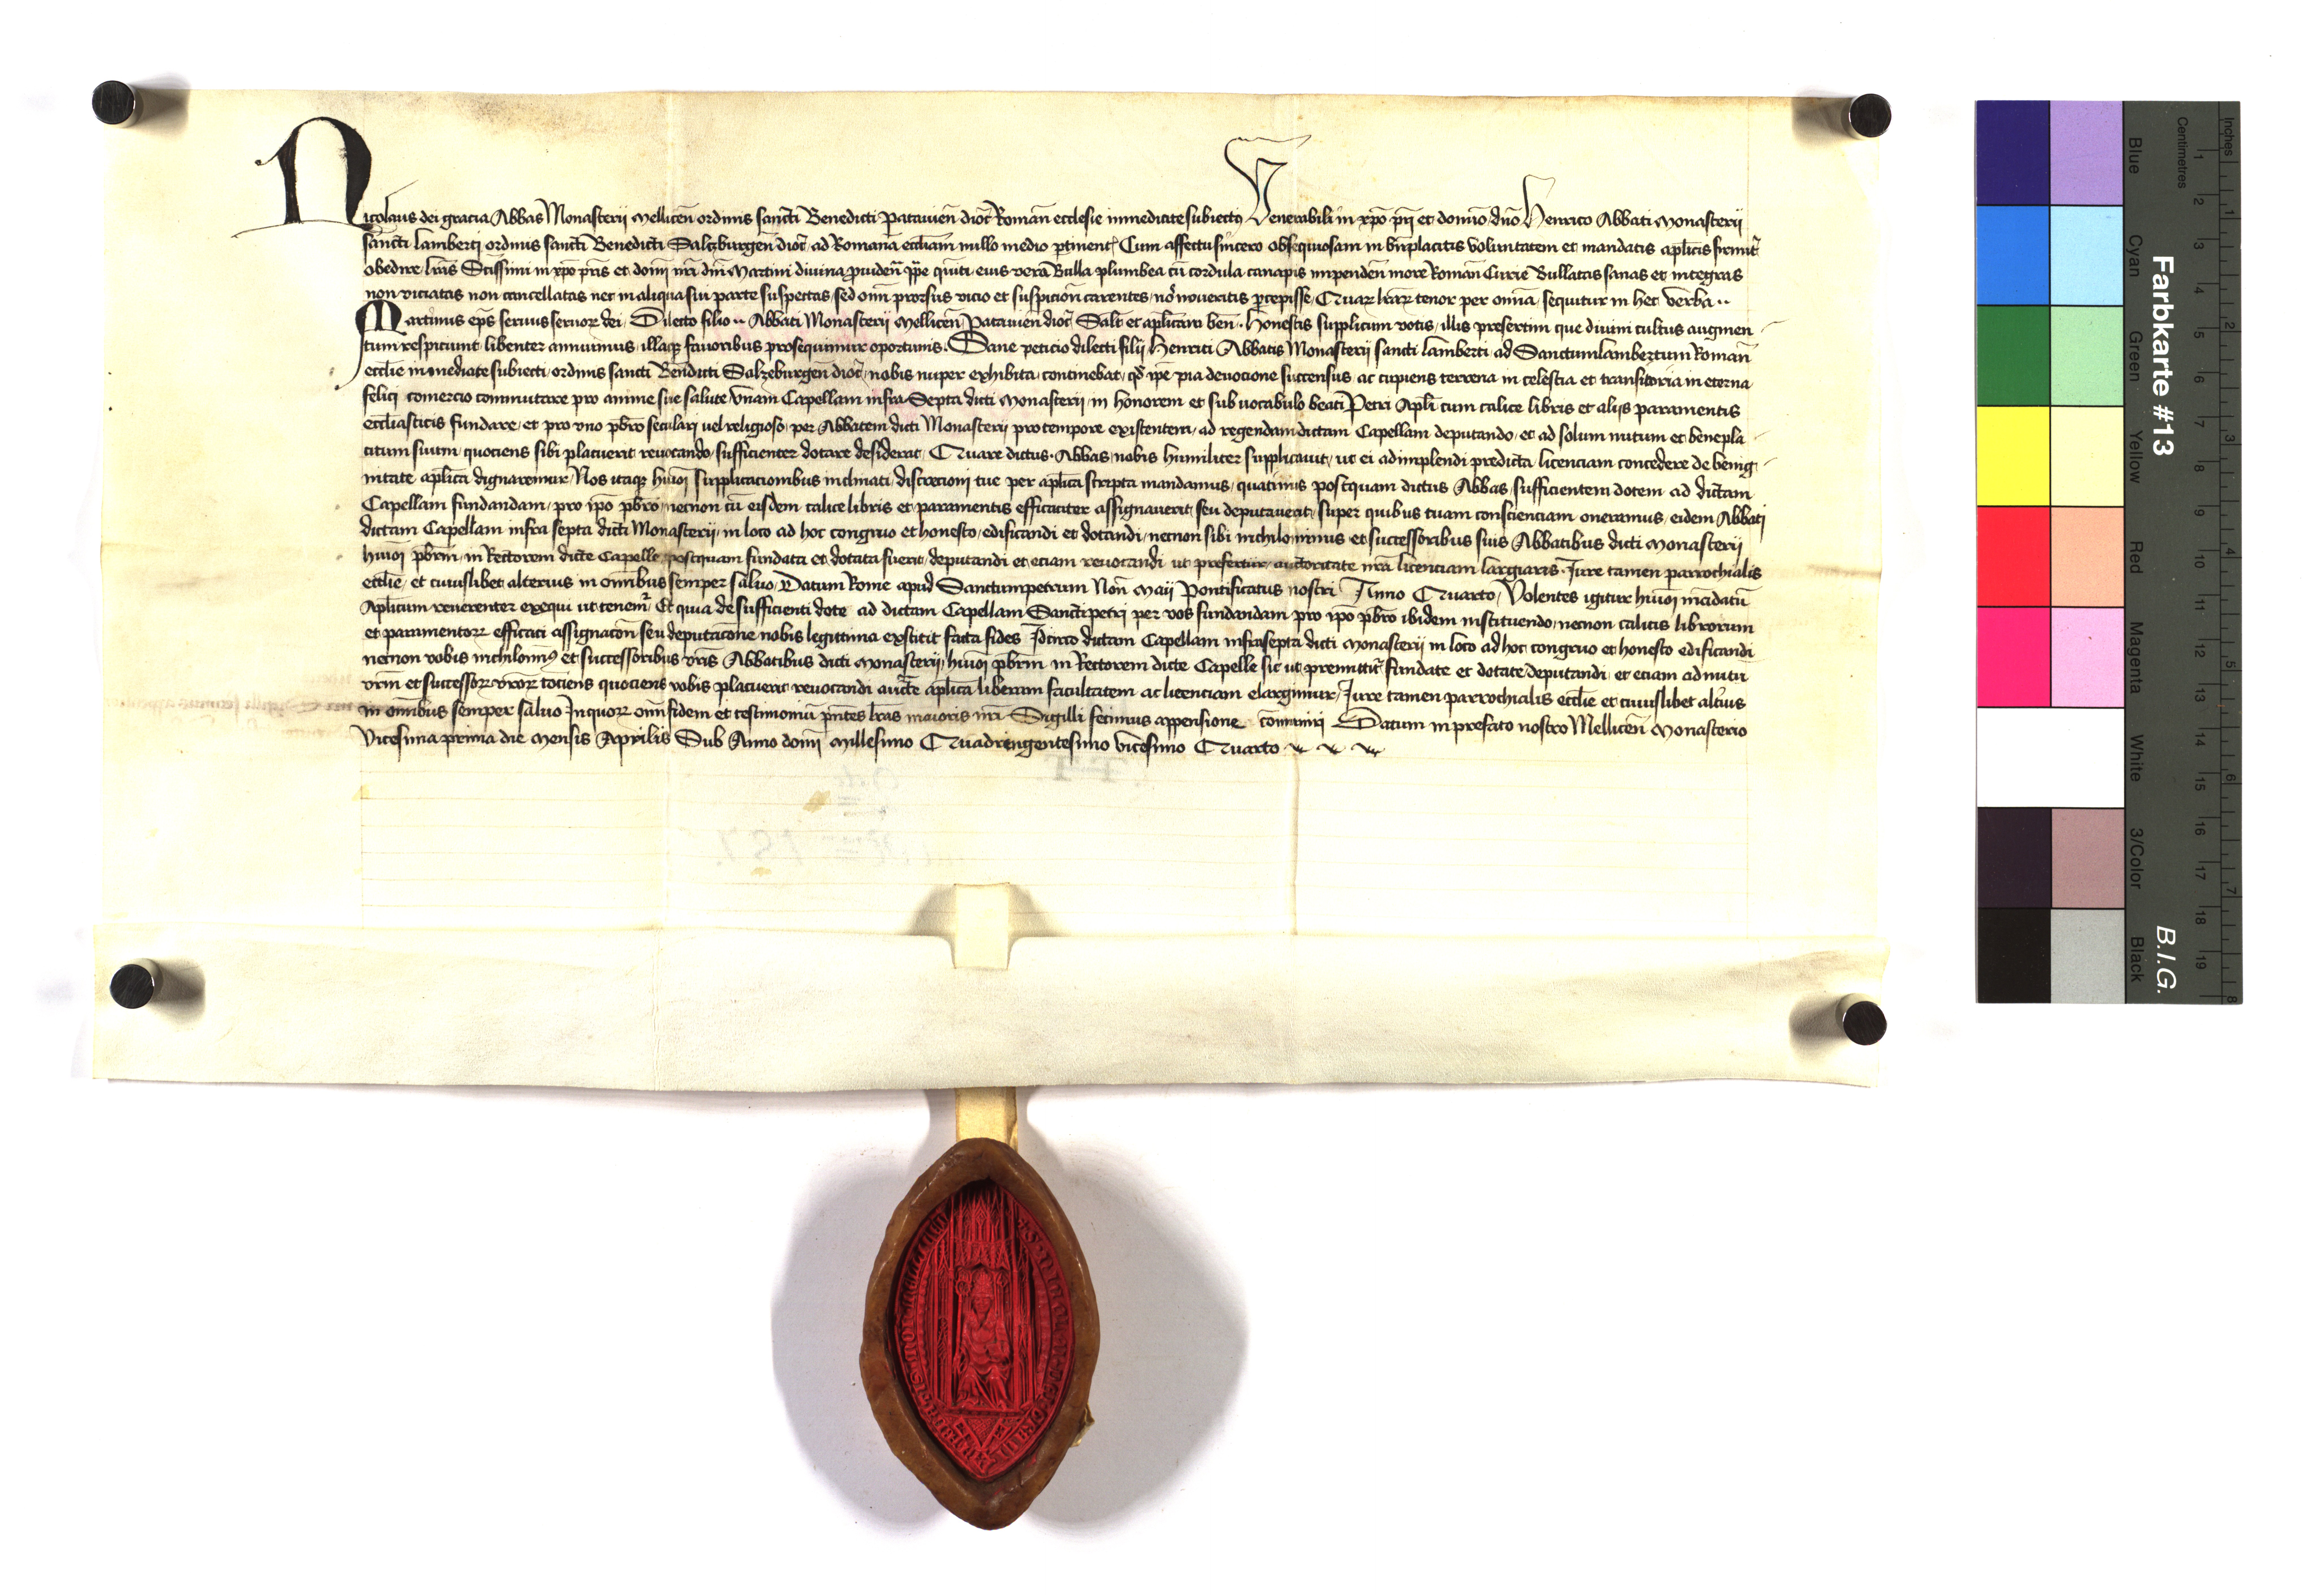 Nicolaus dei gracia Abbas Monasterii Mellicen̄ ordinis sanc̄ti Benedicti Patauien̄ dioc̄ Roman̄ ecclesie inmediate subiectus Venerabili in xp̄o pr̄i et domīo dn̄o Henrico Abbati Monasterii
sanc̄ti Lamberti ordinis sanc̄ti Benedicti Salczburgen̄ dioc̄ ad Romanā eccl̄iam nullo medio ꝑtinent̄ Cum affectu sincero obsequiosam in bn̄placitis voluntatem et mandatis ap̄licis firmit̄
obedire / lr̄as Sc̄issimi in xp̄o pr̄is et domī nr̄i dn̄i Martini diuina ꝓuiden̄ pp̄e quīti eius vera Bulla plumbea cū cordula canapis inpenden̄ more Roman̄ Curie Bullatas sanas et integras
non viciatas non cancellatas nec in aliqua sui parte suspectas / sed om̄i prorsus vicio et suspicion̄ carentes / nō noueritis ꝑcepisse / Quarꝝ lr̄arꝝ tenor per om̄ia / sequitur in hec verba ..
Martinus ep̄s seruus seruorꝝ dei / Dilecto filio .. Abbati Monasterii Mellicen̄ Patauien̄ dioc̄ Sal̄t et ap̄licam ben̄ . Honestis supplicum votis / illis presertim que diuini cultus augmen
tum respiciunt libenter annuimus / illaqꝫ fauoribus prosequimur oportunis . Sane peticio dilecti filii Henrici Abbatis Monasterii sancti Lamberti ad Sanctumlambertum Roman̄
eccl̄ie inmediate subiecti / ordinis sancti Benedicti Salzeburgen̄ dioc̄ / nobis nuper exhibita continebat / qd̄ ip̄e pia deuocione succensus / ac cupiens terrena in celestia et transitoria in eterna
felici comercio commutare pro anime sue salute vnam Capellam infra Septa dicti Monasterii in honorem et sub vocabulo beati Petri Apl̄i cum calice libris et aliis paramentis
eccl̄iasticis fundare / et pro vno pbr̄o seculari uel religioso / per Abbatem dicti Monasterii pro tempore existentem / ad regendam dictam Capellam deputando / et ad solum nutum et benepla
citum suum / quociens sibi placuerit reuocando / sufficienter dotare desiderat / Quare dictus Abbas nobis humiliter supplicauit / ut ei adimplendi predicta licenciam concedere de benig
nitate ap̄lica dignaremur / Nos itaqꝫ hmōi supplicacionibus inclinati / discrecioni tue per ap̄lica scripta mandamus / quatinus postquam dictus Abbas sufficientem dotem ad dictam
Capellam fundandam / pro ip̄o pbr̄o / necnon cū eisdem calice libris et paramentis efficaciter assignauerit / seu deputauerit / super quibus tuam conscienciam oneramus / eidem Abbati
dictam Capellam infra septa dicti Monasterii / in loco ad hoc congruo et honesto / edificandi et dotandi / necnon sibi nichilominus et successoribus suis Abbatibus dicti Monasterii
hmōi pbr̄m / in Rectorem dicte Capelle postquam fundata et dotata fuerit / deputandi et eciam reuocandi ut prefertur / auctoritate nr̄a licenciam largiaris . Iure tamen parrochialis
eccl̄ie / et cuiuslibet alterius in omnibus semper saluo / Datum Rome apud Sanctumpetrum Non̄ Maii Pontificatus nostri Anno Quarto / Volentes igitur hmōi mādatū
Ap̄licum reuerenter exequi ut tenem̄ / Et quia de sufficienti dote ad dictam Capellam Sancti petri per vos fundandam pro ip̄o pbr̄o ibidem instituendo / necnon calicis librorum
et paramentorꝝ efficaci assignacōn seu deputacōne nobis legittima exstitit facta fides Idcirco dictam Capellam infra septa dicti Monasterii in loco ad hoc congruo et honesto edificandi
necnon vobis nichilomīꝰ et successoribus vr̄is Abbatibus dicti Monasterii / hmōi pbr̄m in Rectorem dicte Capelle sic ut premittit̄ fundate et dotate / deputandi / et eciam ad nutū
vr̄m et successorꝝ vr̄orꝝ tociens quociens vobis placuerit reuocandi auct̄te ap̄lica liberam facultatem ac licenciam elargimur / Iure tamen parrochialis eccl̄ie et cuiuslibet alt̄ius
in om̄ibus semper saluo In quorꝝ om̄i fidem et testimoniū pn̄tes lr̄as maioris nr̄i Sigilli fecimus appensione com̄uniri Datum in prefato nostro Mellicen̄ Monasterio
Vicesima prima die Mensis Aprilis Sub Anno domī Millesimo Quadringentesimo vicesimo Quarto
Farbkarte #13
B.I.G.
Blue
Cyan
Green
Yellow
Red
Magenta
White
3/Color
Black
Centimetres
1
2
3
4
5
6
7
8
9
10
11
12
13
14
15
16
17
18
19
Inches
1
2
3
4
5
6
7
8